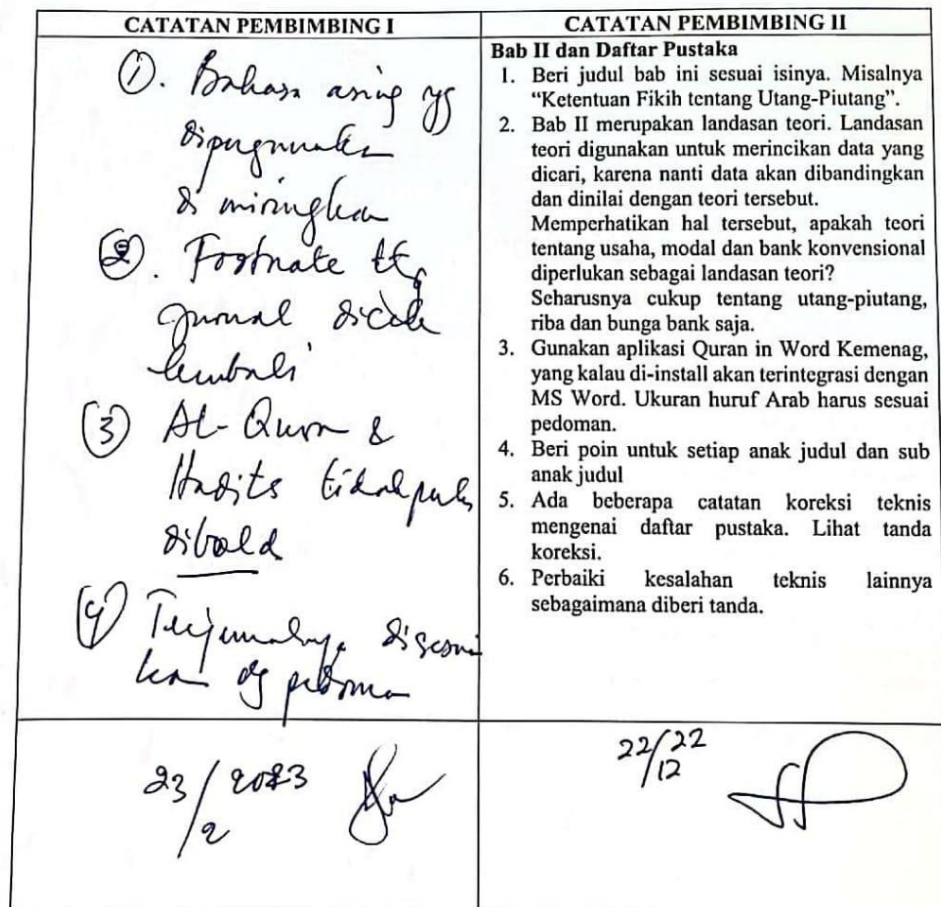 CATATAN PEMBIMBING I
①. Bahasa asing yg
dipergunakan
di miringkan
②. Footnate ttg
jurnal dicek
kembali
③ AL-Quran &
Hadits tidak perlu
dibold
④ Terjemahnya disesuai
kan dg pedoman
23/2 2023
CATATAN PEMBIMBING II
Bab II dan Daftar Pustaka
1. Beri judul bab ini sesuai isinya. Misalnya
“Ketentuan Fikih tentang Utang-Piutang”.
2. Bab II merupakan landasan teori. Landasan
teori digunakan untuk merincikan data yang
dicari, karena nanti data akan dibandingkan
dan dinilai dengan teori tersebut.
Memperhatikan hal tersebut, apakah teori
tentang usaha, modal dan bank konvensional
diperlukan sebagai landasan teori?
Seharusnya cukup tentang utang-piutang,
riba dan bunga bank saja.
3. Gunakan aplikasi Quran in Word Kemenag,
yang kalau di-install akan terintegrasi dengan
MS Word. Ukuran huruf Arab harus sesuai
pedoman.
4. Beri poin untuk setiap anak judul dan sub
anak judul
5. Ada beberapa catatan koreksi teknis
mengenai daftar pustaka. Lihat tanda
koreksi.
6. Perbaiki kesalahan teknis lainnya
sebagaimana diberi tanda.
22/12 22